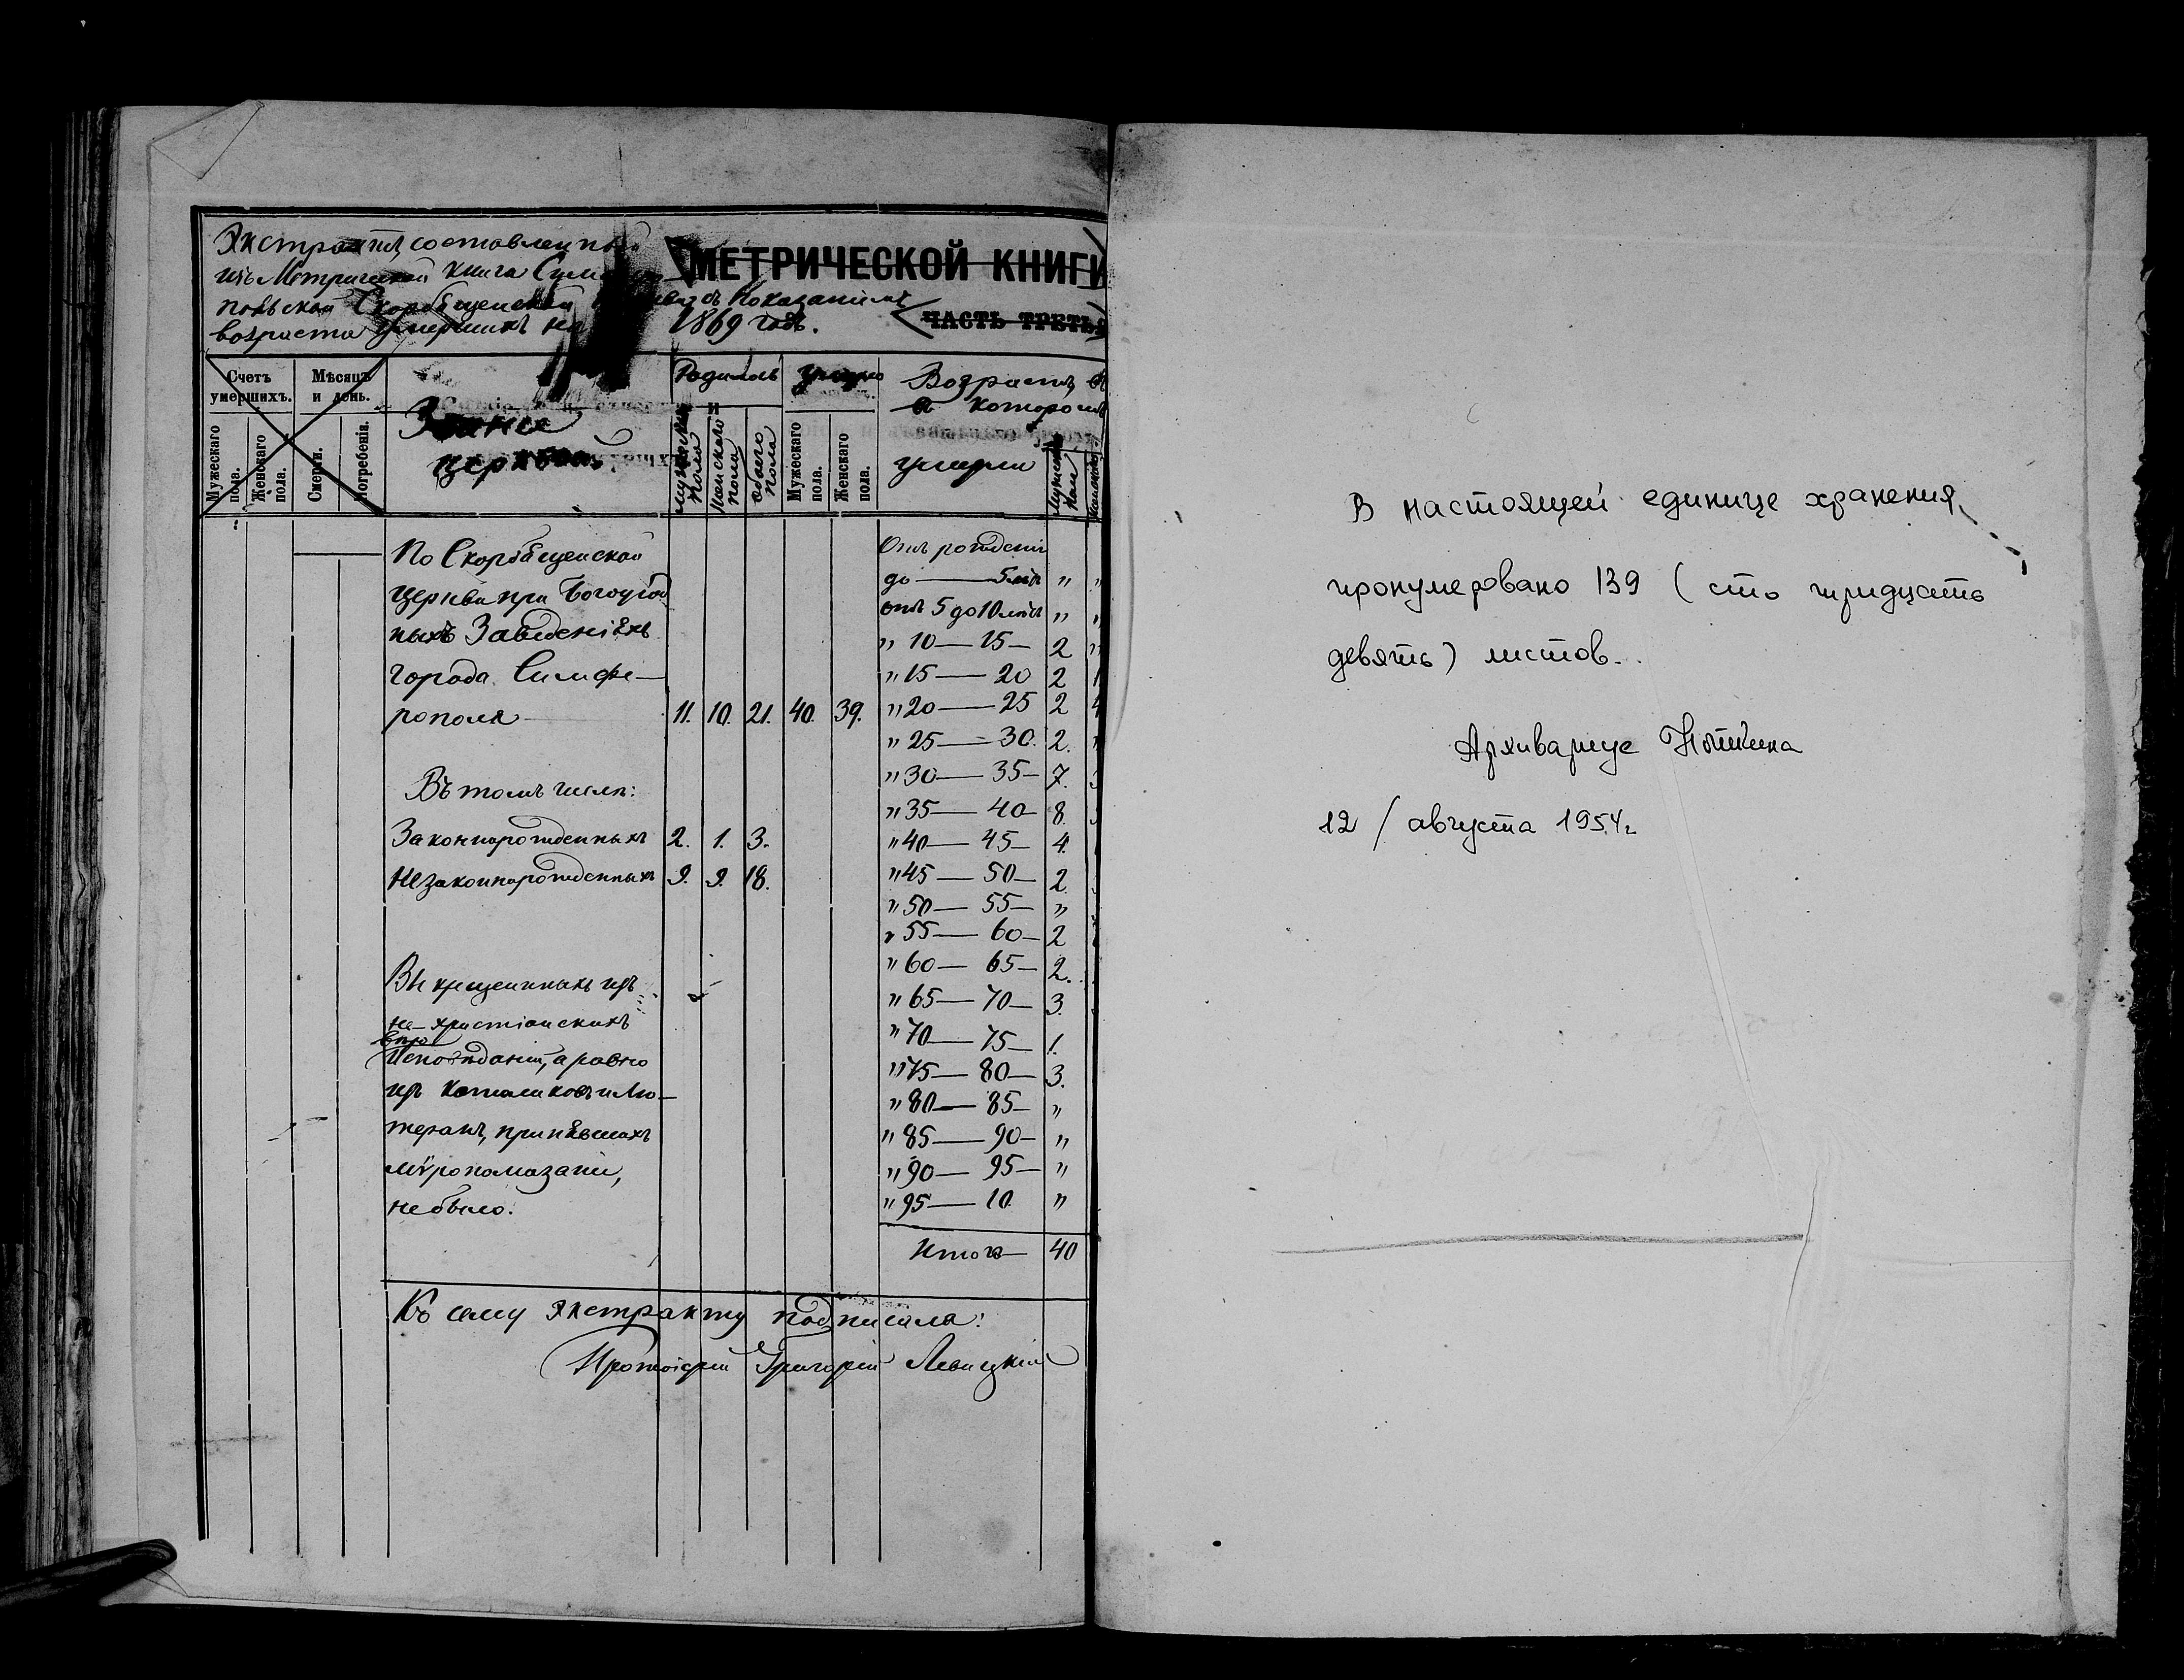 Экстрактъ, составленный
изъ Метрической книги Симферо
МЕТРИЧЕСКОЙ КНИГИ
польской Скорбященской съ показаніемъ
возраста умершихъ на 1869 годъ.
ЧАСТЬ ТРЕТЬЯ
Счетъ умершихъ.
Мужескаго пола.
Женскаго пола.
Мѣсяцъ и день.
Смерти.
Погребенія.
Званіе
церквей
Родилось
Мужескаго пола
Женскаго пола
Обоего пола
Умерло
Мужескаго пола.
Женскаго пола.
Возрастъ, въ
которомъ
умерли
По Скорбященской
Церкви при Богоугод
ныхъ Заведеніяхъ
города Симфе—
рополя 11. 10. 21. 40. 39.
Въ томъ числѣ:
Законнорожденныхъ 2. 1. 3.
Незаконнорожденныхъ 9. 9. 18.
Выкрещенныхъ изъ
не-христіанскихъ
Исповѣданій, а равно
изъ Католиковъ и Лю—
теранъ, принявшихъ
мѵропомазаніи,
не было.
Отъ рожденія
до — 5 лѣтъ "
отъ 5 до 10 лѣтъ "
" 10 — 15 — 2
" 15 — 20 2
" 20 — 25 2
" 25 — 30. 2.
" 30 — 35 — 7.
" 35 — 40 — 8.
" 40 — 45 — 4.
" 45 — 50 — 2.
" 50 — 55 — "
" 55 — 60 — 2
" 60 — 65 — 2.
" 65 — 70 — 3.
" 70 — 75 — 1.
" 75 — 80 — 3.
" 80 — 85 — "
" 85 — 90 — "
" 90 — 95 — "
" 95 — 10 "
Итого — 40
Къ сему экстракту подписался:
Протоіерей Григорій Левицкій
В настоящей единице хранения
пронумеровано 139 (сто тридцать
девять) листов.
Архивариус
12 / августа 1954 г.